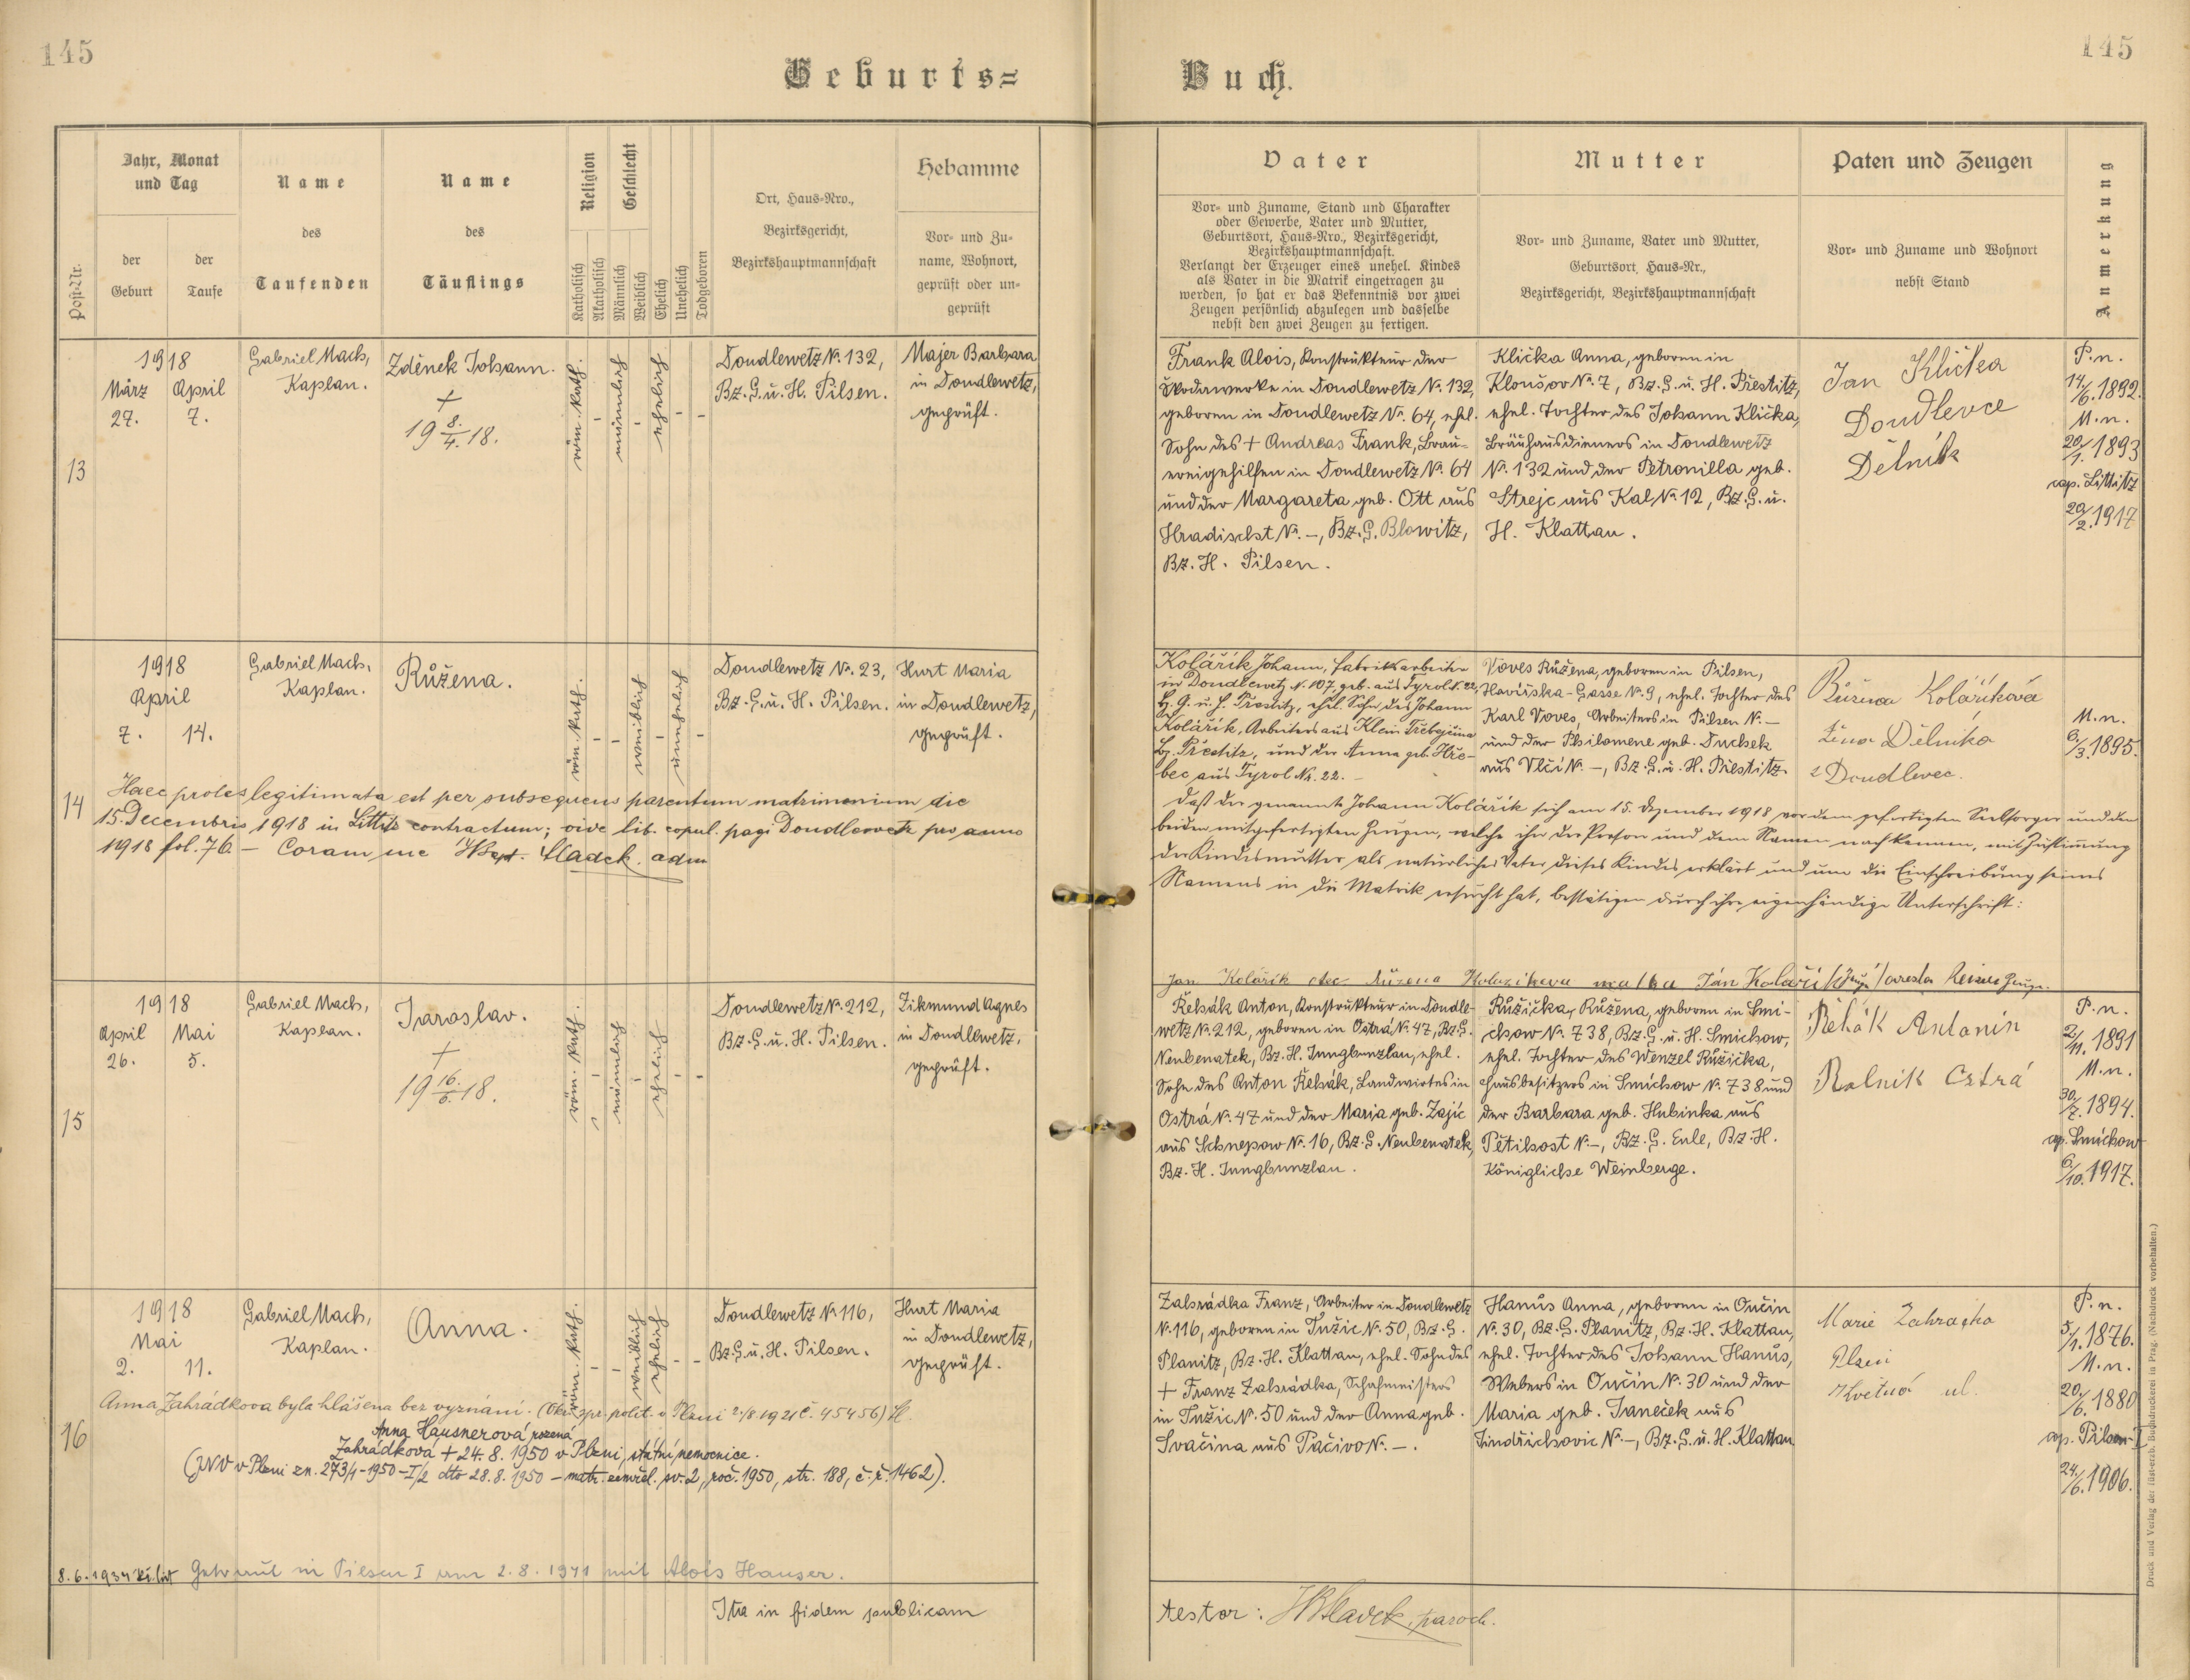 145
145
Geburts=
Buch.
Post-Nr.
Jahr, Monat
und Tag
der
Geburt
der
Taufe
Name
des
Taufenden
Name
des
Täuflings
Religion
Katholisch
Akatholisch
Geschlecht
Männlich
Weiblich
Ehelich
Unehelich
Todgeboren
Ort, Haus-Nro.,
Bezirksgericht,
Bezirkshauptmannschaft
Hebamme
Vor- und Zu-
name, Wohnort,
geprüft oder un-
geprüft
Vater
Vor- und Zuname, Stand und Charakter
oder Gewerbe, Vater und Mutter,
Geburtsort, Haus-Nro., Bezirksgericht,
Bezirkshauptmannschaft.
Verlangt der Erzeuger eines unehel. Kindes
als Vater in die Matrik eingetragen zu
werden, so hat er das Bekenntnis vor zwei
Zeugen persönlich abzulegen und dasselbe
nebst den zwei Zeugen zu fertigen.
Mutter
Vor- und Zuname, Vater und Mutter,
Geburtsort, Haus-Nr.,
Bezirksgericht, Bezirkshauptmannschaft
Paten und Zeugen
Vor- und Zuname und Wohnort
nebst Stand
Anmerkung
13
1918
März April
27. 7.
Gabriel Mach,
Kaplan.
Zděnek Johann.
+
19 8./4. 18.
röm. kath.
-
männlich
-
ehelich
-
-
Doudlewetz N. 132,
Bz. G. u. H. Pilsen.
Majer Barbara
in Doudlewetz,
geprüft.
Frank Alois, Konstrukteur der
Škodawerke in Doudlewetz N. 132,
geboren in Doudlewetz N. 64, ehel.
Sohn des + Andreas Frank, Brau-
ereigehilfen in Doudlewetz N. 64
und der Margareta geb. Ott aus
Hradischt N. -, Bz. G. Blowitz,
Bz. H. Pilsen.
Klička Anna, geboren in
Kloušov N. 7, Bz. G. u. H. Přestitz,
ehel. Tochter des Johann Klička,
Bräuhausdieners in Doudlewetz
N. 132 und der Petronilla geb.
Strejc aus Kal N. 12, Bz. G. u.
H. Klattau.
Jan Klička
Doudlevce
Dělník
P. n.
14./6. 1892.
M. n.
20./1. 1893
cop. Littitz
20./2. 1917
14
1918
April
7. 14.
Gabriel Mach,
Kaplan.
Růžena.
röm. kath.
-
-
weiblich
-
unehelich
-
Doudlewetz N. 23,
Bz. G. u. H. Pilsen.
Hurt Maria
in Doudlewetz,
geprüft.
Haec proles legitimata est per subsequens parentum matrimonium die
15. Decembris 1918 in Littitz contractum; vide lib. copul. pagi Doudlowetz pro anno
1918 fol. 76. - Coram me Sladek. adm
Kolářík Johann, Fabriksarbeiter
in Doudlewetz N. 107, geb. aus Tyrol N. 22,
Bz. G. u. H. Přestitz, ehel. Sohn des Johann
Kolářík, Arbeiters aus Klein Třebejčina
Bz. Přestitz, und der Anna geb. Hře-
bec aus Tyrol Nr. 22. -
Voves Růžena, geboren in Pilsen,
Havlíčka-Gasse N. 9, ehel. Tochter des
Karl Voves, Arbeiters in Pilsen N. -
und der Philomene geb. Duchek
aus Vlčí N. -, Bz. G. u. H. Přestitz.
Růžena Koláříková
žena Dělníka
z Doudlevec.
M. n.
6./3. 1895.
Daß der genannte Johann Kolářík sich am 15. Dezember 1918 vor dem gefertigten Seelsorger und den
beiden mitgefertigten Zeugen, welche ihn der Person und dem Namen nach kennen, mit Zustimmung
der Kindesmutter als natürlicher Vater dieses Kindes erklärt und um die Einschreibung seines
Namens in die Matrik ersucht hat, bestätigen durch ihre eigenhändige Unterschrift:
Jan Kolářík otec Růžena Kolaříkova matka Ján Kolářík Zeuge Zeuge.
15
1918
April Mai
26. 5.
Gabriel Mach,
Kaplan.
Jaroslav.
+
19 16./6. 18.
röm. kath.
-
männlich
-
ehelich
-
-
Doudlewetz N. 212,
Bz. G. u. H. Pilsen.
Zikmund Agnes
in Doudlewetz,
geprüft.
Řehák Anton, Konstrukteur in Doudle-
wetz N. 212, geboren in Ostrá N. 47, Bz. G.
Neubenatek, Bz. H. Jungbunzlau, ehel.
Sohn des Anton Řehák, Landwirtes in
Ostrá N. 47 und der Maria geb. Zajíc
aus Schnepow N. 16, Bz. G. Neubenatek,
Bz. H. Jungbunzlau.
Růžička, Růžena, geboren in Smi-
chow N. 738, Bz. G. u. H. Smichow,
ehel. Tochter des Wenzel Růžička,
Hausbesitzers in Smíchow N. 738 und
der Barbara geb. Hubinka aus
Pětihost N. -, Bz. G. Eule, Bz. H.
Königliche Weinberge.
Řehák Antonín
Rolník Ostrá
P. n.
2./11. 1891
M. n.
30./7. 1894.
cop. Smíchow
6./10. 1917.
16
1918
Mai
2. 11.
Gabriel Mach,
Kaplan.
Anna.
röm. kath.
-
-
weiblich
ehelich
-
-
Doudlewetz N. 116,
Bz. G. u. H. Pilsen.
Hurt Maria
in Doudlewetz,
geprüft.
Anna Zahrádkova byla hlášena bez vyznání. (Okr. spr. polit. v Plzni 2./8. 1921 č. 45456)
Anna Hausnerová rozená
Zahrádková + 24. 8. 1950 v Plzni, státní nemocnice.
(JNV v Plzni zn. 273/1-1950-I/2 dto 28. 8. 1950 - matr. zemřel. sv. 2, roč. 1950, str. 188, č. ř. 1462).
8. 6. 1934 Getraut in Pilsen I am 2. 8. 1941 mit Alois Hauser.
Zahrádka Franz, Arbeiter in Doudlewetz
N. 116, geboren in Tužic N. 50, Bz. G.
Planitz, Bz. H. Klattau, ehel. Sohn des
+ Franz Zahrádka, Schafmeisters
in Tužic N. 50 und der Anna geb.
Svačina aus Pačivo N. -.
Hanuš Anna, geboren in Oučin
N. 30, Bz. G. Planitz, Bz. H. Klattau,
ehel. Tochter des Johann Hanuš,
Webers in Oučin N. 30 und der
Maria geb. Janeček aus
Jindřichovic N. -, Bz. G. u. H. Klattau
Marie Zahradka
Plzeň
Květná ul.
P. n.
5./1. 1876.
M. n.
20./6. 1880
cop. Pilsen I
24./6. 1906.
Ita in fidem publicam
testor: Sladek, paroch.
Druck und Verlag der fürst-erzb. Buchdruckerei in Prag. (Nachdruck vorbehalten.)